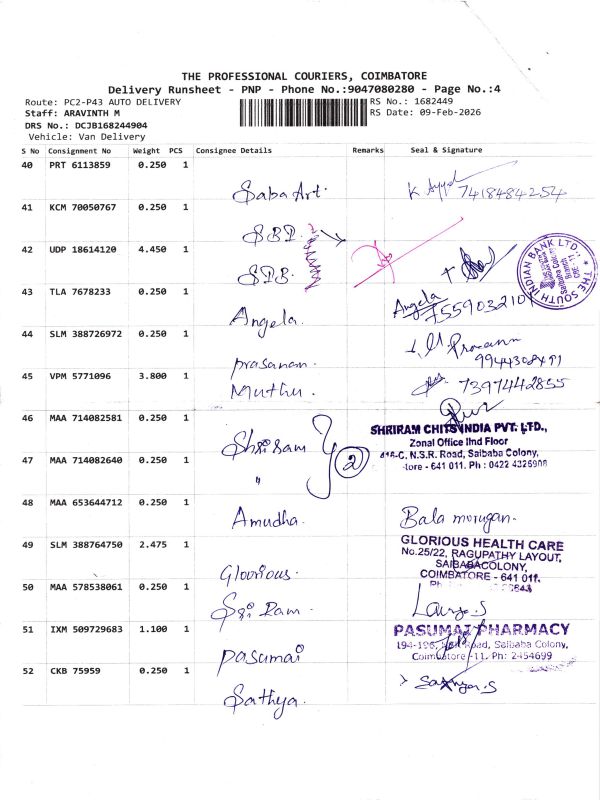 THE PROFESSIONAL COURIERS, COIMBATORE
Delivery Runsheet - PNP - Phone No.:9047080280 - Page No.:4
Route: PC2-P43 AUTO DELIVERY
RS No.: 1682449
Staff: ARAVINTH M
RS Date: 09-Feb-2026
DRS No.: DCJB168244904
Vehicle: Van Delivery
S No Consignment No Weight PCS Consignee Details Remarks Seal & Signature
40 PRT 6113859 0.250 1
Saba Art. 7418484254
41 KCM 70050767 0.250 1
SBI
42 UDP 18614120 4.450 1
SIB
THE SOUTH INDIAN BANK LTD.
43 TLA 7678233 0.250 1
Angela. Angela
44 SLM 388726972 0.250 1
prasanam.
45 VPM 5771096 3.800 1
Muthu. 7397442855
46 MAA 714082581 0.250 1
Shriram 2
SHRIRAM CHITS INDIA PVT. LTD.,
Zonal Office IInd Floor
N.S.R. Road, Saibaba Colony,
641 011. Ph : 0422 4326908
47 MAA 714082640 0.250 1
"
48 MAA 653644712 0.250 1
Amudha. Bala morugan.
49 SLM 388764750 2.475 1
Glorious.
GLORIOUS HEALTH CARE
No.25/22, RAGUPATHY LAYOUT,
SAIBABACOLONY,
COIMBATORE - 641 011.
50 MAA 578538061 0.250 1
Sri Ram.
51 IXM 509729683 1.100 1
pasumai
PASUMAI PHARMACY
Road, Saibaba Colony,
Coimbatore -11. Ph: 2454699
52 CKB 75959 0.250 1
Sathya. Sathya.S